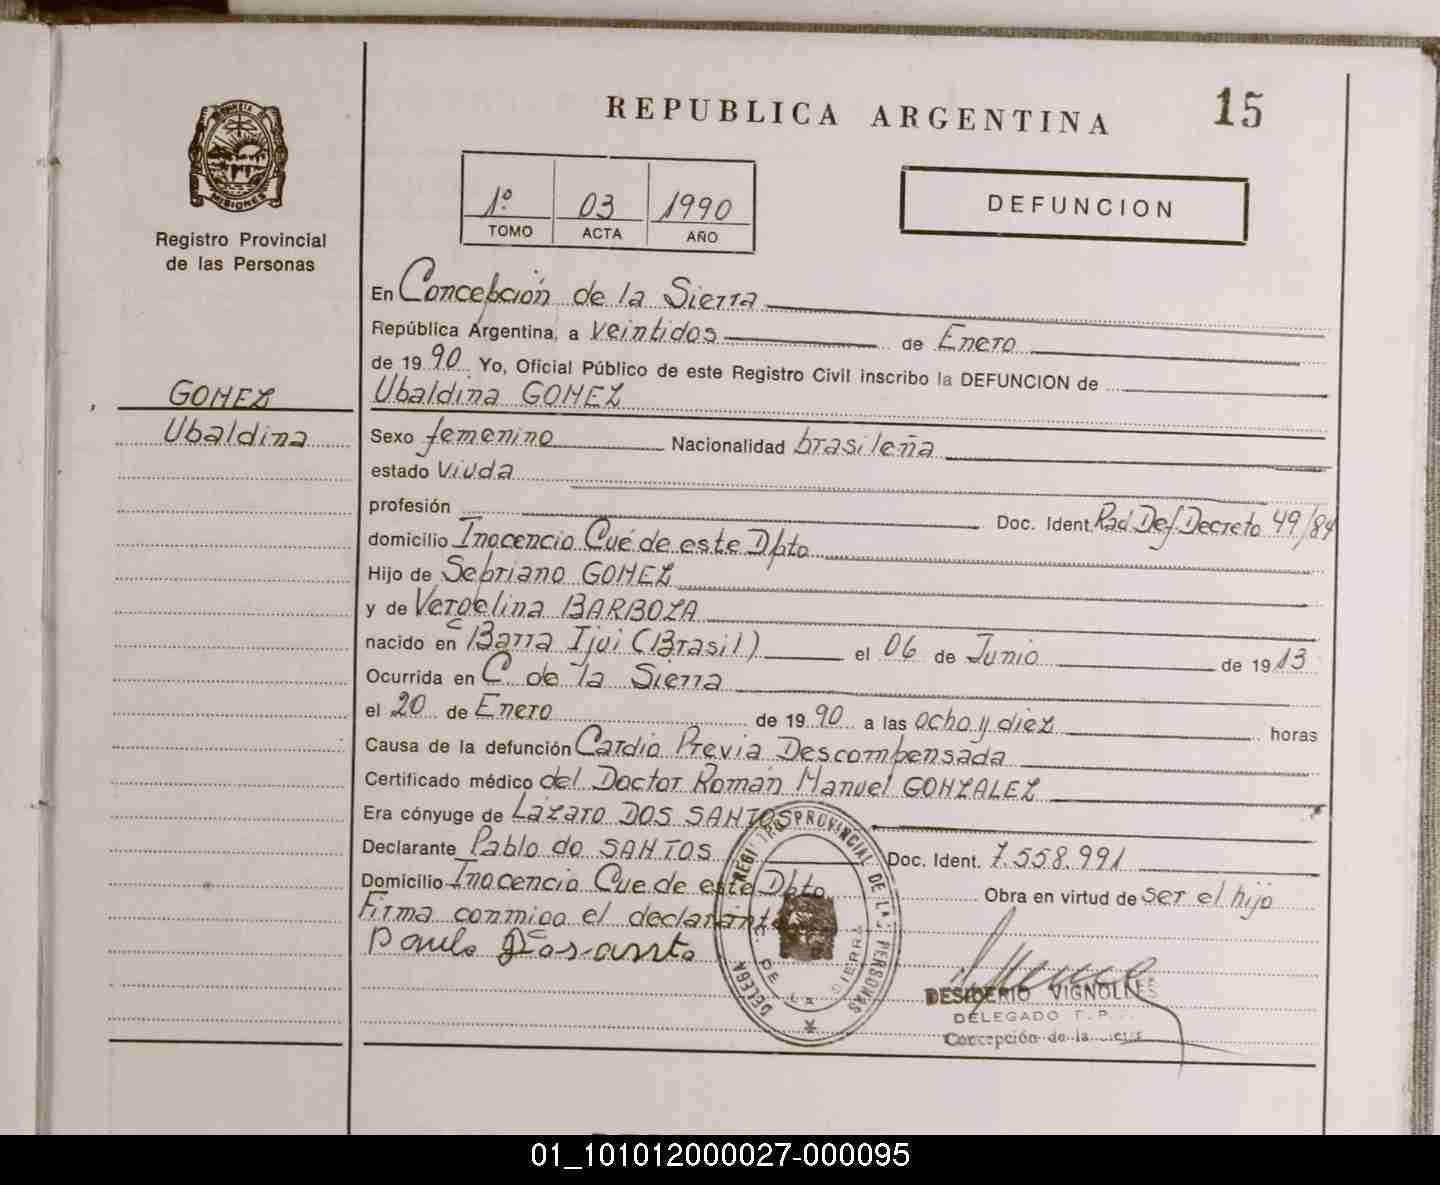 REPUBLICA ARGENTINA
15
PROVINCIA D
MISIONES
Registro Provincial
de las Personas
1º 03 1990
TOMO ACTA AÑO
DEFUNCION
GOMEZ
Ubaldina
En Concepción de la Sierra
República Argentina, a veintidos de Enero
de 1990 Yo, Oficial Público de este Registro Civil inscribo la DEFUNCION de
Ubaldina GOMEZ
Sexo femenino Nacionalidad brasileña
estado viuda
profesión Doc. Ident. Rad.Def.Decreto 49/84
domicilio Inocencio Cué de este Dpto
Hijo de Sebriano GOMEZ
y de Vergelina BARBOZA
nacido en Barra Ijui (Brasil) el 06 de Junio de 1913
Ocurrida en C. de la Sierra
el 20 de Enero de 1990 a las ocho y diez horas
Causa de la defunción Cardio Previa Descompensada
Certificado médico del Doctor Román Manuel GONZALEZ
Era cónyuge de Lázaro DOS SANTOS
Declarante Pablo do SANTOS Doc. Ident. 7.558.991
Domicilio Inocencio Cue de este Dpto Obra en virtud de ser el hijo
Firma conmigo el declarante
REGISTRO PROVINCIAL DE LAS PERSONAS
DELEGA
C. DE LA SIERRA
DESIDERIO VIGNOLLES
DELEGADO
Concepción de la
01_101012000027-000095